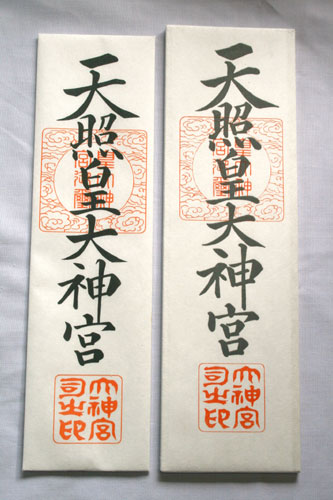 天照皇大神宮
大神宮
司之印
天照皇大神宮
大神宮
司之印